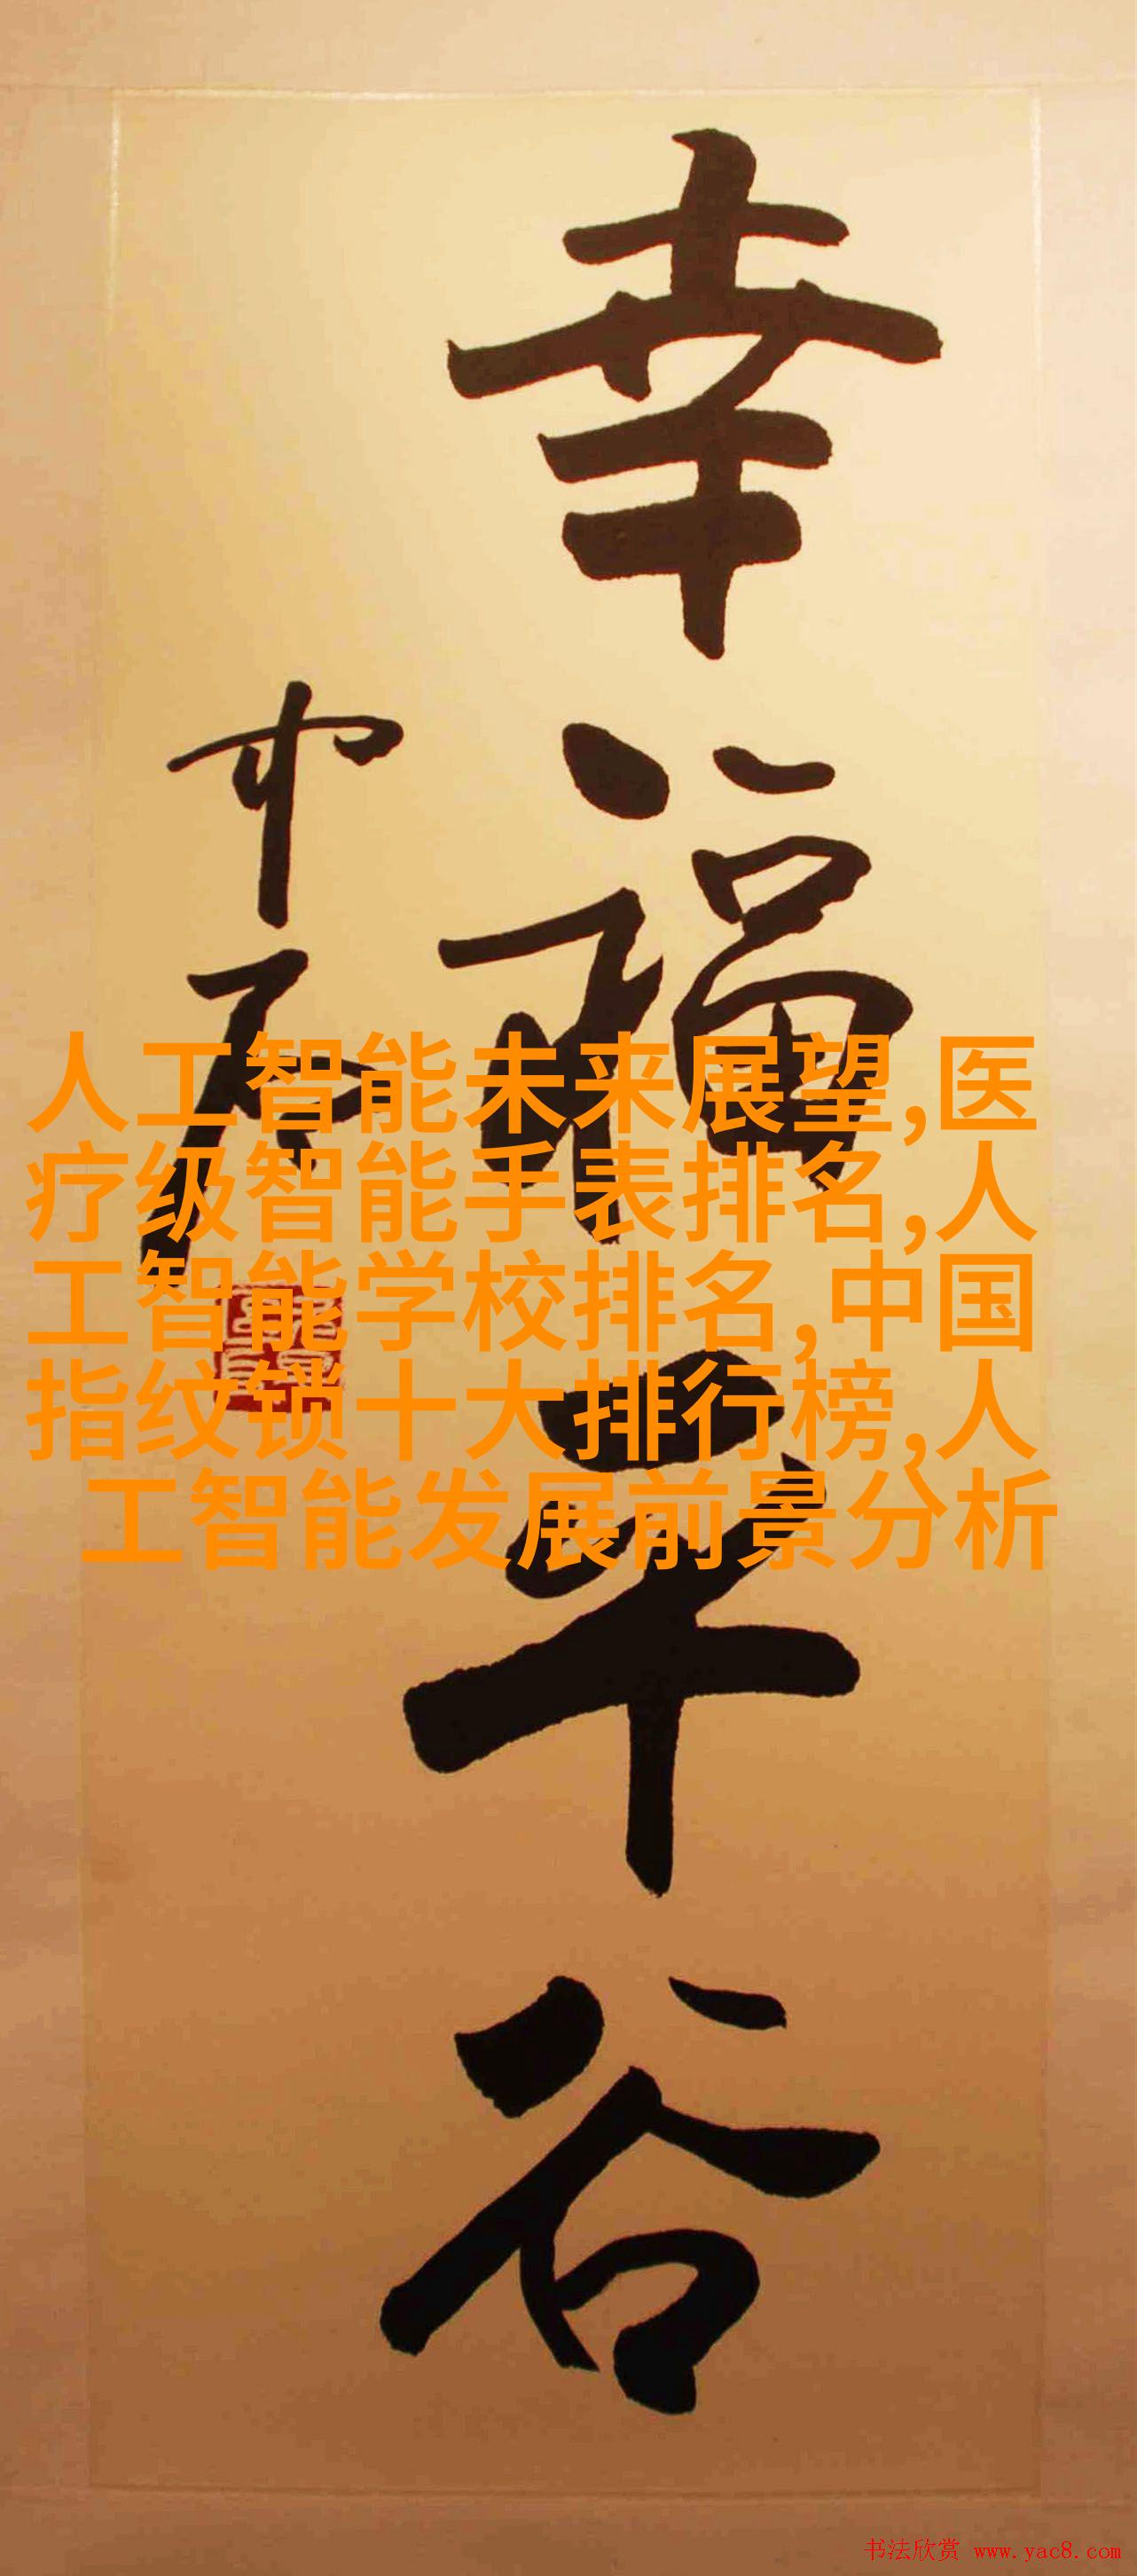 幸福平谷
中石
人工智能未来展望,医
疗级智能手表排名,人
工智能学校排名,中国
指纹锁十大排行榜,人
工智能发展前景分析
书法欣赏 www.yac8.com